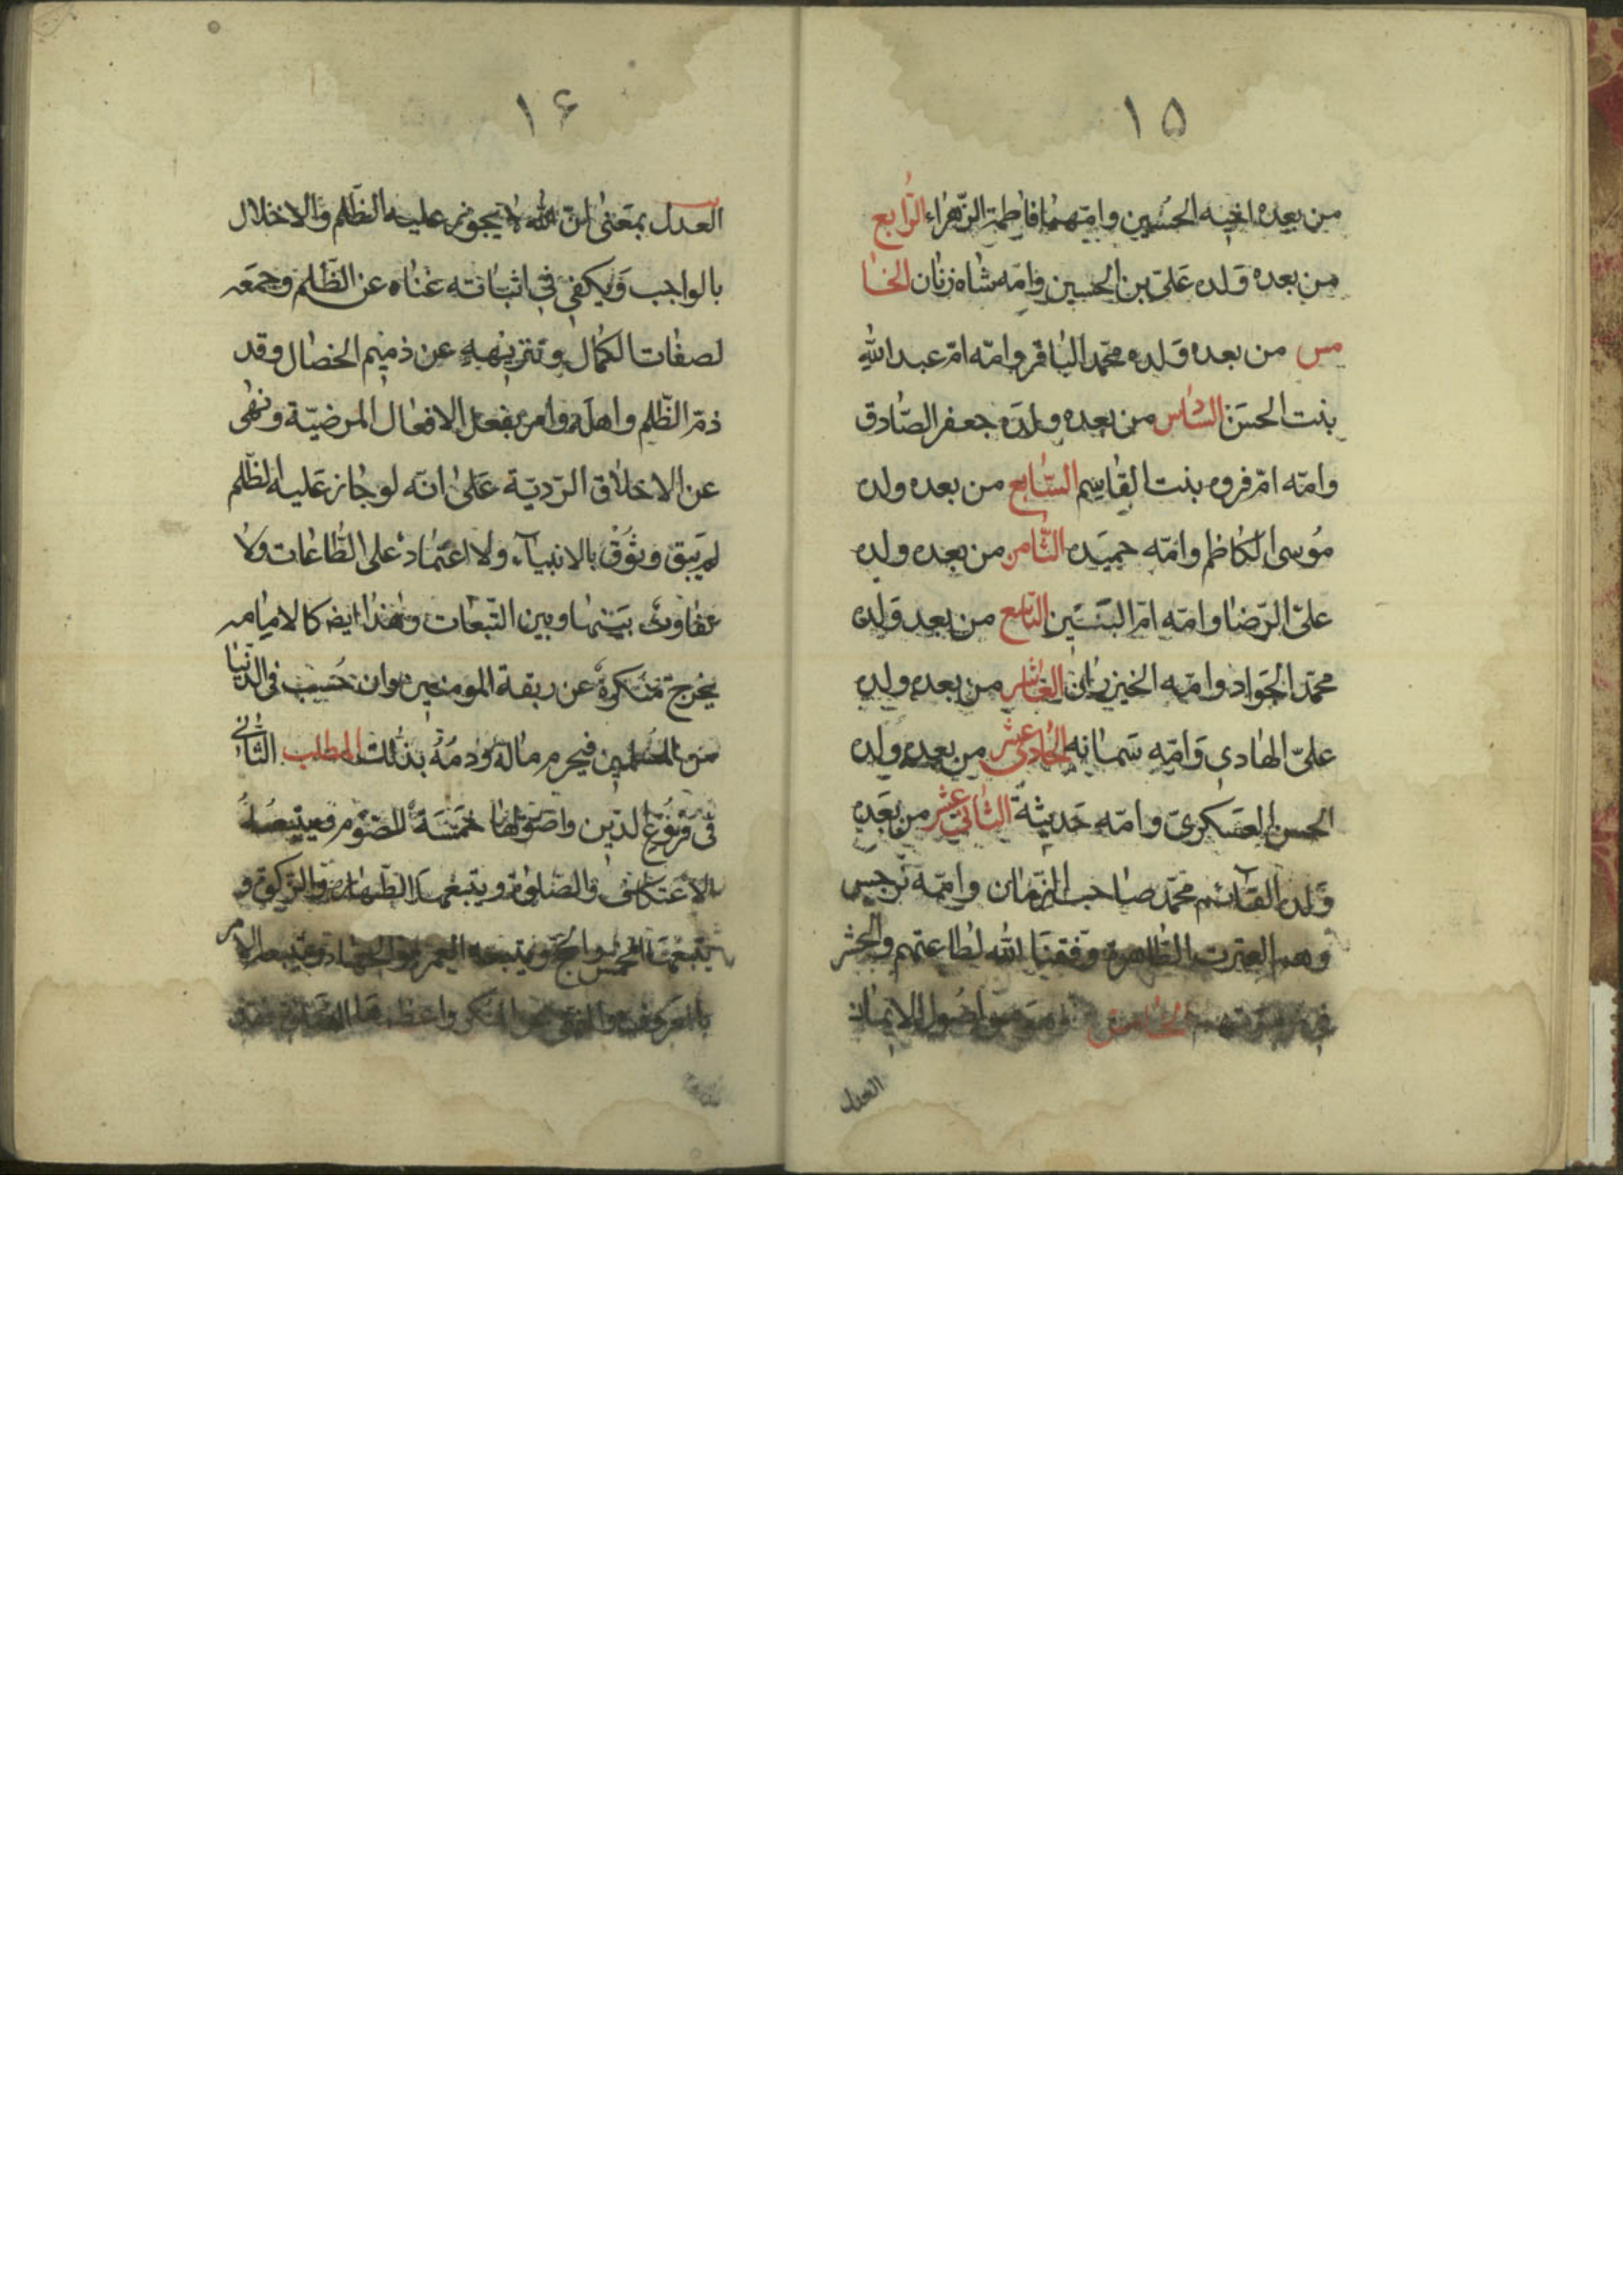 ١٥
من بعده اخيه الحسين وامّهما فاطمة الزّهراء الرّابع
من بعده ولده علىّ بن الحسين وامّه شاه زنان الخا
مس من بعده ولده محمّد الباقر وامّه امّ عبد الله
بنت الحسن السّادس من بعده ولده جعفر الصّادق
وامّه امّ فروه بنت القاسم السّابع من بعده ولده
موسى الكاظم وامّه حميده الثّامن من بعده ولده
علىّ الرّضا وامّه امّ البنين التّاسع من بعده ولده
محمّد الجواد وامّه الخيزران العاشر من بعده ولده
علىّ الهادى وامّه سمانه الحادى عشر من بعده ولده
الحسن العسكرىّ وامّه حديثة الثّانى عشر من بعده
ولده القآئم محمّد صاحب الزّمان وامّه نرجس
وهم العترت الطّاهرة وفّقنا الله لطاعتهم والحشر
فى زمرتهم الخامس من اصول الايمان
العدل
١۶
العدل بمعنى انّ الله لا يجوز عليه الظّلم والاخلال
بالواجب ويكفى فى اثباته غناه عن الظّلم وجمعه
لصفات الكمال وتنزيهه عن ذميم الخصال وقد
ذمّ الظّلم واهله وامر بفعل الافعال المرضيّة ونهى
عن الاخلاق الرّديّة على انّه لو جاز عليه الظّلم
لم يبق وثوق بالانبيآء ولا اعتماد على الطّاعات ولا
تفاوت بينها وبين التّبعات وهذا ايضا كالامامه
يخرج منكره عن ربقة المومنين وان حسب فى الدّنيا
من المسلمين فيحرم ماله ودمه بذلك المطلب الثّانى
فى فروع الدّين واصولها خمسة الصّوم ويتبعه
الاعتكاف والصّلوة ويتبعها الطّهارة والزّكوة و
يتبعها الخمس والحجّ ويتبعه العمرة والجهاد ويتبعه الامر
بالمعروف والنّهى عن المنكر